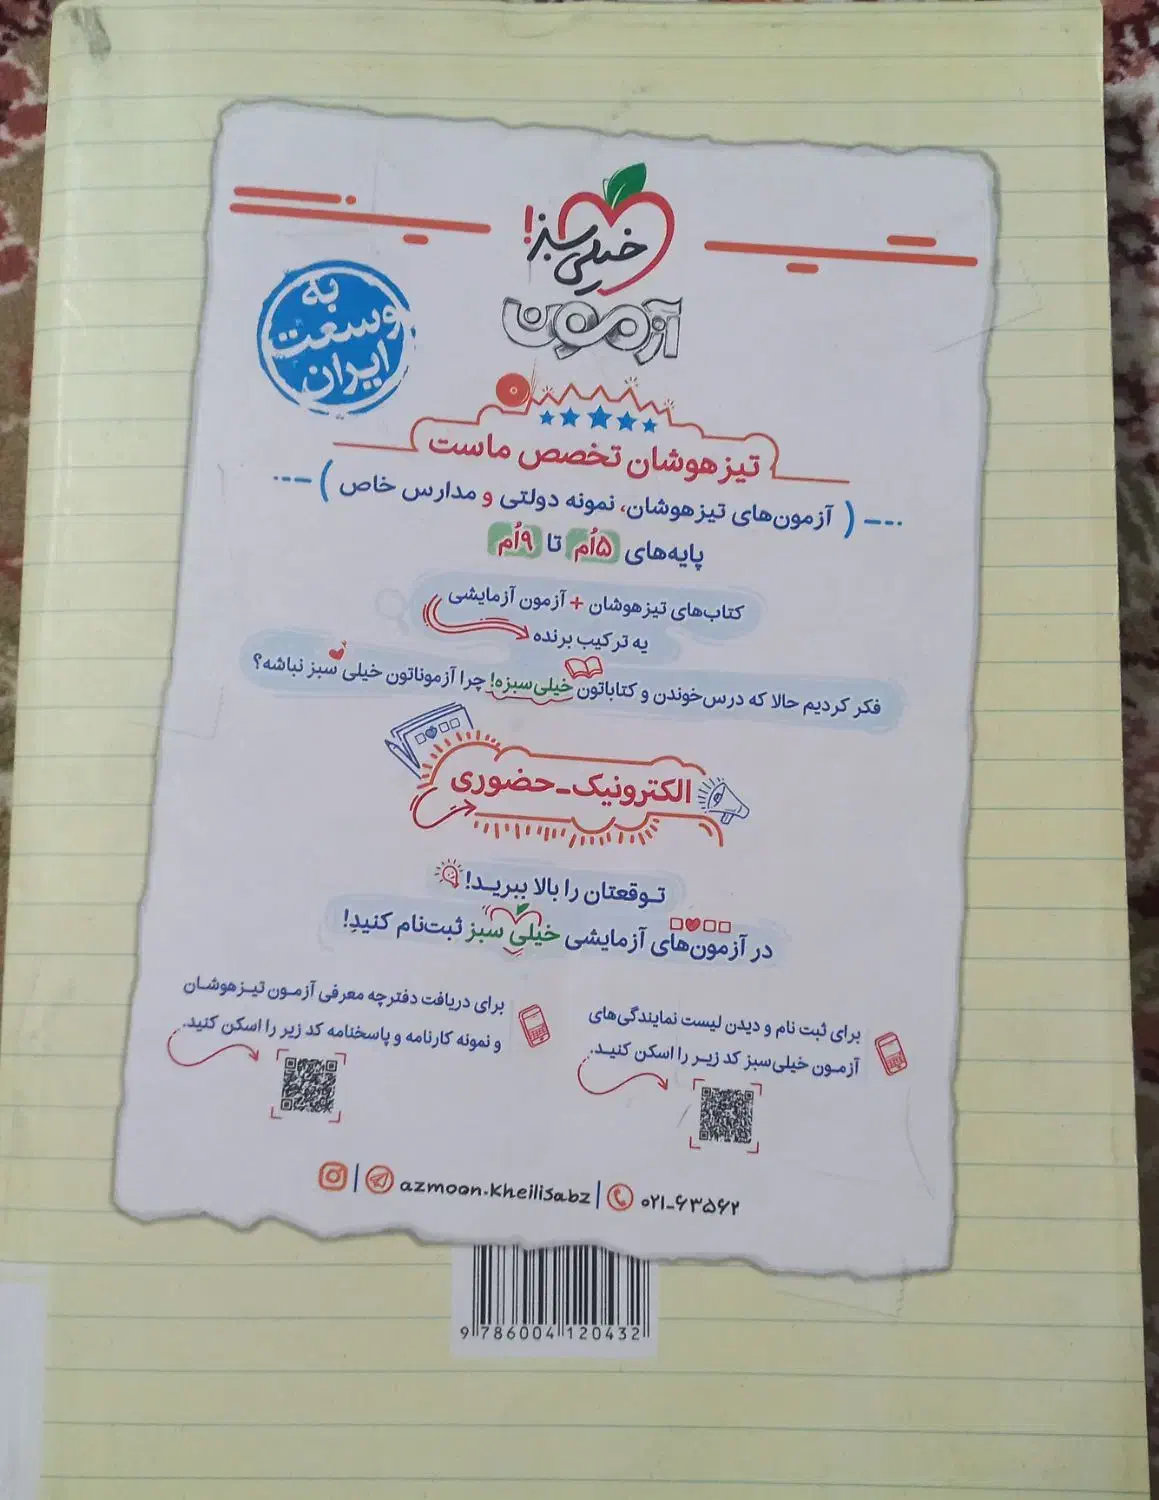 خیلی سبز!
آزمون
به
وسعت
ایران
تیزهوشان تخصص ماست
( آزمون‌های تیزهوشان، نمونه دولتی و مدارس خاص )
پایه‌های ۵اُم تا ۹اُم
کتاب‌های تیزهوشان + آزمون آزمایشی
یه ترکیب برنده
فکر کردیم حالا که درس‌خوندن و کتاباتون خیلی‌سبزه! چرا آزموناتون خیلی سبز نباشه؟
الکترونیک - حضوری
توقعتان را بالا ببرید!
در آزمون‌های آزمایشی خیلی سبز ثبت‌نام کنید!
برای ثبت نام و دیدن لیست نمایندگی‌های
آزمون خیلی‌سبز کد زیر را اسکن کنید.
برای دریافت دفترچه معرفی آزمون تیزهوشان
و نمونه کارنامه و پاسخنامه کد زیر را اسکن کنید.
azmoon.kheilisabz | ۰۲۱-۶۳۵۶۲
9 786004 120432